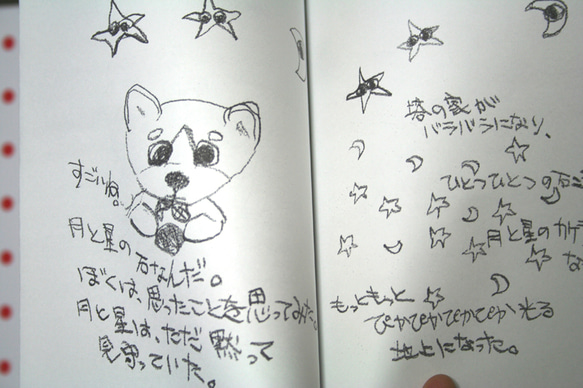 すごいね。
月と星の石なんだ。
ぼくは、思ったことを思ってみた。
月と星は、ただ黙って
見守っていた。
塔の家が
バラバラになり、
ひとつひとつの石
月と星のカケ
な
もっともっと
ぴかぴかぴかぴか光る
地上になった。